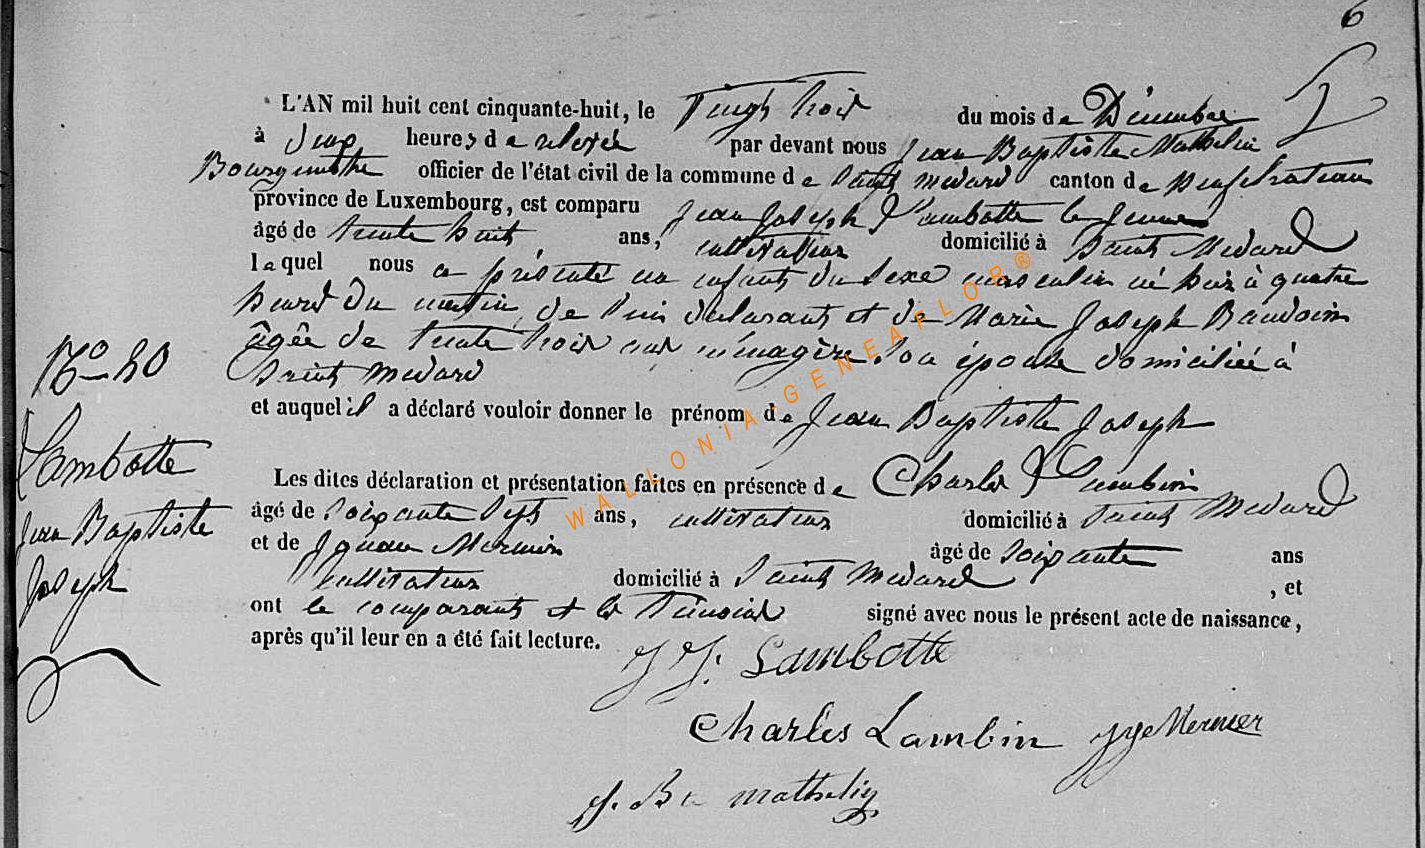 6
L'AN mil huit cent cinquante-huit, le Vingt trois du mois de Décembre
à cinq heures de relevée par devant nous Jean Baptiste Mathelin
Bourgmestre officier de l'état civil de la commune de Saint Médard canton de Neufchateau
province de Luxembourg, est comparu Jean Joseph Lambotte le Jeune
âgé de trente huit ans, cultivateur domicilié à Saint Médard
lequel nous a présenté un enfant du sexe masculin né hier à quatre
heures du matin, de lui déclarant et de Marie Joseph Baudoin
âgée de trente trois ans ménagère son épouse domiciliée à
Saint Médard
et auquel il a déclaré vouloir donner le prénom de Jean Baptiste Joseph
Les dites déclaration et présentation faites en présence de Charles Lambin
âgé de soixante sept ans, cultivateur domicilié à Saint Médard
et de Mernier âgé de soixante ans
cultivateur domicilié à Saint Médard , et
ont le comparant et les témoins signé avec nous le présent acte de naissance,
après qu'il leur en a été fait lecture.
No 80
Lambotte
Jean Baptiste
Joseph
J J. Lambotte
Charles Lambin Mernier
J. Bte Mathelin
WALLONIA-GENEAFLOR®